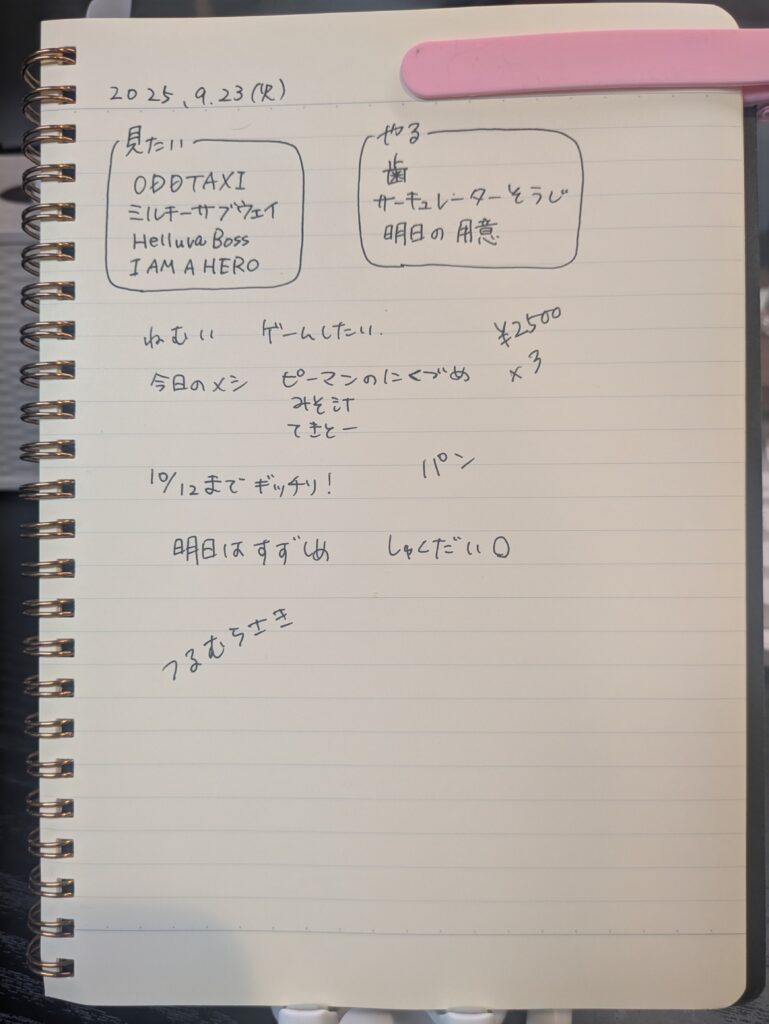 2025.9.23(火)
見たい
ODDTAXI
ミルキーサブウェイ
Helluva Boss
I AM A HERO
やる
歯
サーキュレーターそうじ
明日の用意
ねむい ゲームしたい.
¥2500
×3
今日のメシ ピーマンのにくづめ
みそ汁
てきとー
10/12まで ギッチリ!
パン
明日はすずしめ しゅくだい〇
つるむらさき